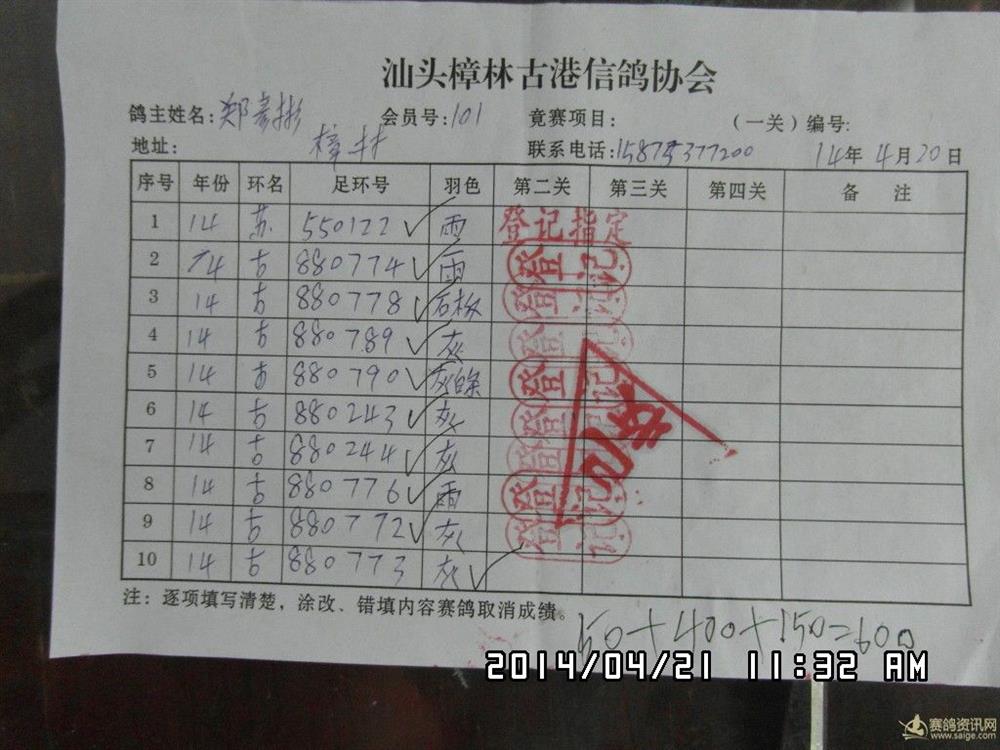 汕头樟林古港信鸽协会
鸽主姓名:郑彦彬 会员号:101 竟赛项目: (一关)编号:
地址: 樟林 联系电话:15875377200 14年4月20日
序号 年份 环名 足环号 羽色 第二关 第三关 第四关 备 注
1 14 苏 550122 ✓ 雨 登记指定
2 14 古 880774 ✓ 雨 登记
3 14 古 880778 ✓ 石板 登记
4 14 古 880789 ✓ 灰 登记
5 14 古 880790 ✓ 灰白条 登记
6 14 古 880243 ✓ 灰 登记
7 14 古 880244 ✓ 灰 登记
8 14 古 880776 ✓ 雨 登记
9 14 古 880772 ✓ 灰 登记
10 14 古 880773 灰 ✓
注：逐项填写清楚，涂改、错填内容赛鸽取消成绩。
50+400+150=600
2014/04/21 11:32 AM
赛鸽资讯网
www.saige.com